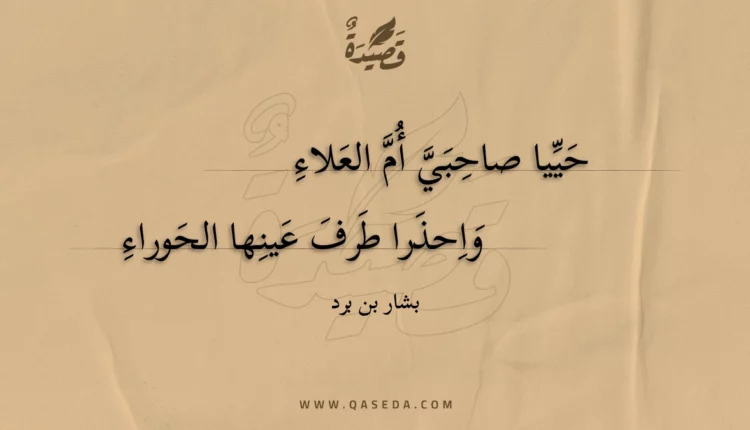 قَصِيْدَةٌ
حَيِّيا صاحِبَيَّ أُمَّ العَلاءِ
وَاِحذَرا طَرفَ عَينِها الحَوراءِ
بشار بن برد
WWW.QASEDA.COM